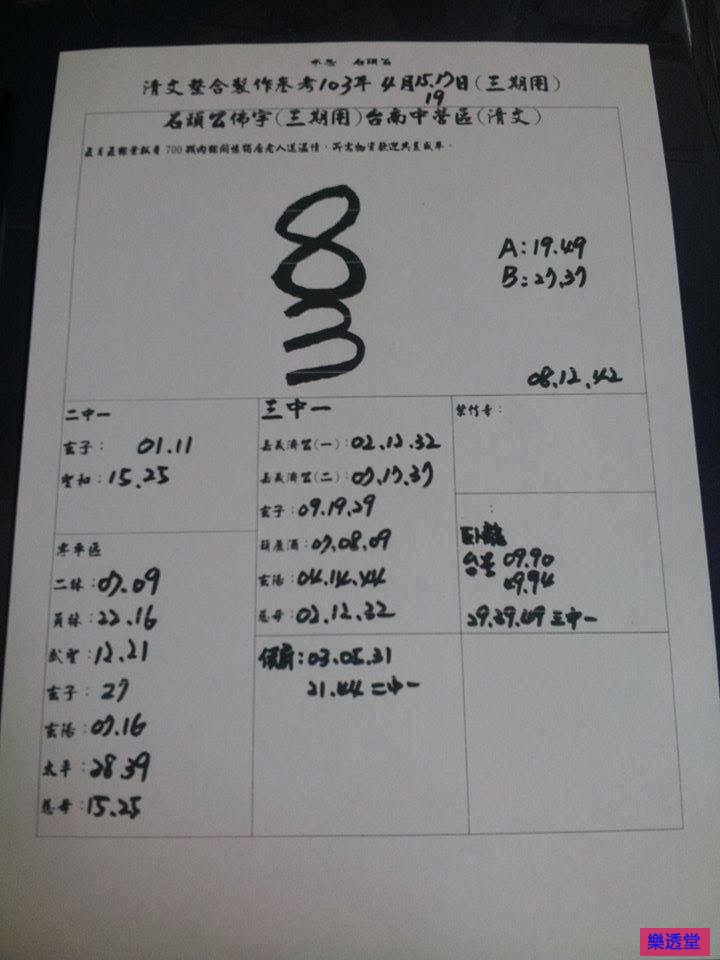 石頭公
清文整合製作參考103年4月15.17日(三期用)
19
石頭公佛字(三期用)台南中營區(清文)
83
A:19.49
B:27.37
08.12.42
二中一
玄子: 01.11
聖和:15.25
三中一
嘉義濟公(一):02.12.32
嘉義濟公(二):07.17.37
玄子:09.19.29
07.08.09
玄陽:04.14.44
慈母:02.12.32
紫竹寺:
:
臥龍
台号 09.90
49.94
29.39.49 三中一
二林:07.09
員林:22.16
武聖:12.21
玄子: 27
玄陽:07.16
太平:28 39
慈母:15.25
保府:03.05.31
21.44 二中一
樂透堂